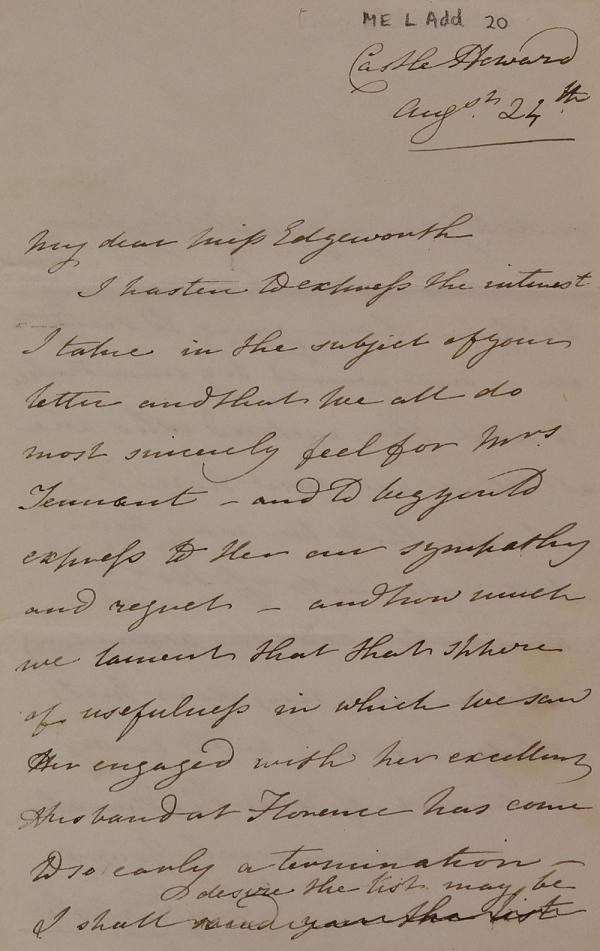 ME L Add 20
Castle Howard
Augst 24th
My dear Miss Edgeworth
I hasten to express the interest
I take in the subject of your
letter and that we all do
most sincerely feel for Mrs
Tennant - and to beg you to
express to Her our sympathy
and regret - and how much
we lament that that sphere
of usefulness in which we saw
Her engaged with her excellent
Husband at Florence has come
to so early a termination -
desire the list may be
I shall send you the list